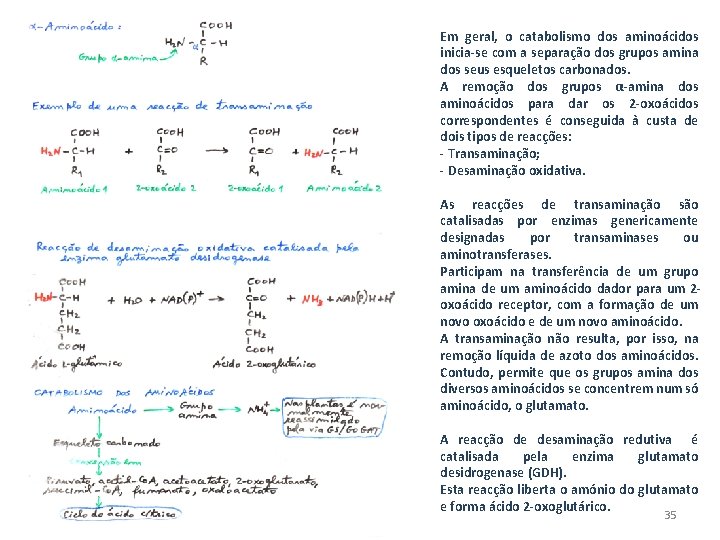 α-Aminoácido:
COOH
H₂N-C-H
α
R
Grupo α-amina
Exemplo de uma reacção de transaminação
COOH COOH COOH COOH
H₂N-C-H + C=O → C=O + H₂N-C-H
R₁ R₂ R₁ R₂
Aminoácido 1 2-oxoácido 2 2-oxoácido 1 Aminoácido 2
Reacção de desaminação oxidativa catalisada pela
enzima glutamato desidrogenase
COOH COOH
H₂N-C-H + H₂O + NAD(P)⁺ → C=O + NH₃ + NAD(P)H+H⁺
CH₂ CH₂
CH₂ CH₂
COOH COOH
Ácido L-glutâmico Ácido 2-oxoglutárico
CATABOLISMO DOS AMINOÁCIDOS
Aminoácido → Grupo amina → NH₄⁺ →
Nas plantas é nor
malmente
reassimilado
pela via GS/GOGAT
Esqueleto carbonado
conversão em
Piruvato, acetil-CoA, acetoacetato, 2-oxoglutarato,
succinil-CoA, fumarato, oxaloacetato
Ciclo do ácido cítrico
Em geral, o catabolismo dos aminoácidos
inicia-se com a separação dos grupos amina
dos seus esqueletos carbonados.
A remoção dos grupos α-amina dos
aminoácidos para dar os 2-oxoácidos
correspondentes é conseguida à custa de
dois tipos de reacções:
- Transaminação;
- Desaminação oxidativa.
As reacções de transaminação são
catalisadas por enzimas genericamente
designadas por transaminases ou
aminotransferases.
Participam na transferência de um grupo
amina de um aminoácido dador para um 2-
oxoácido receptor, com a formação de um
novo oxoácido e de um novo aminoácido.
A transaminação não resulta, por isso, na
remoção líquida de azoto dos aminoácidos.
Contudo, permite que os grupos amina dos
diversos aminoácidos se concentrem num só
aminoácido, o glutamato.
A reacção de desaminação redutiva é
catalisada pela enzima glutamato
desidrogenase (GDH).
Esta reacção liberta o amónio do glutamato
e forma ácido 2-oxoglutárico.
35